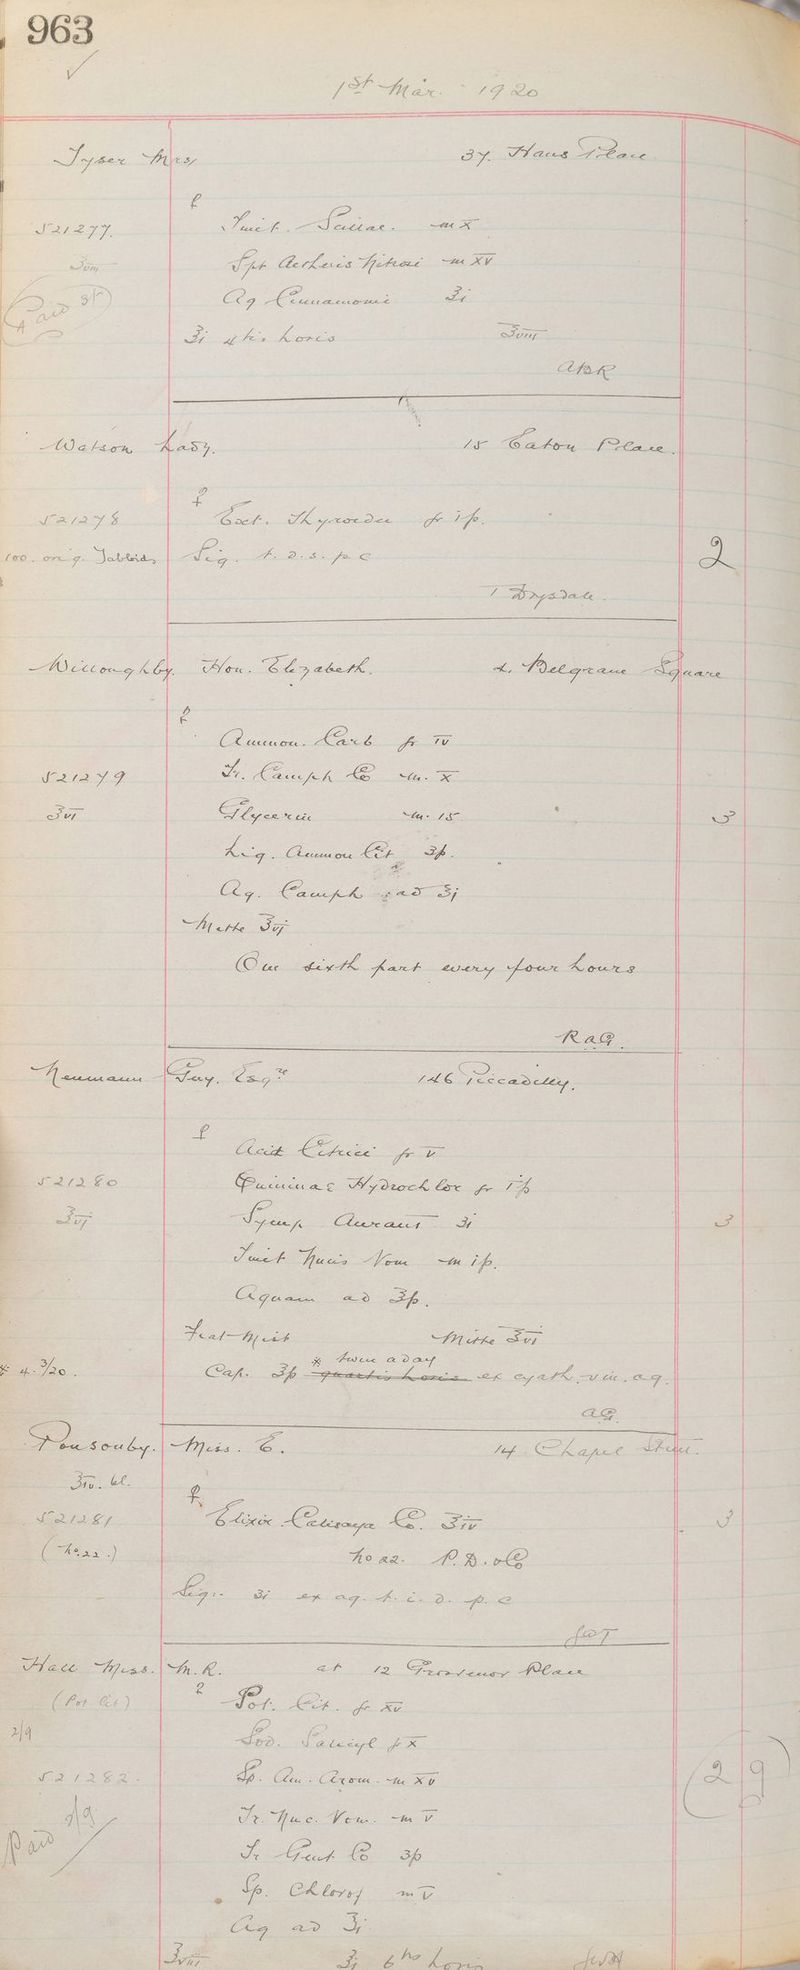 963
1st Mar. 1920
Tyser Mrs 37. Hans Place
521277. Tinct. Scillae. m x
℥viii Spt Aetheris Nitrosi m xv
Paid Aq Cinnamomi ℥i
℥i 4tis horis ℥viii
ABR
Watson Lady. 15 Eaton Place.
521278 Ext. Thyroidei gr iss.
100. orig. Tabloids Sig. t.d.s. p.c 2
T Drysdale.
Willoughby. Hon. Elizabeth. 2. Belgrave Square
Ammon. Carb gr iv
521279 Tr. Camph Co m. x
℥vi Glycerin m. 15 3
Liq. Ammon Cit ʒss.
Aq. Camph ad ℥j
Mitte ℥vj
One sixth part every four hours
R.a.G.
Neumann Guy. Esqre 146 Piccadilly.
Acid Citrici gr v
521280 Quininae Hydrochlor gr iss
℥vj Syrup Aurant ʒi 3
Tinct Nucis Vom m iss.
Aquam ad ℥ss.
Fiat Mist Mitte ℥vi
* twice a day
* 4.3/20. Cap. ℥ss quartis horis ex cyath. vin. aq.
AG.
Ponsonby. Miss. E. 14 Chapel Street.
℥iv. bl.
521281 Elixir Calisaya Co. ℥iv 3
(No.22.) No 22. P.D. & Co
Sig:- ʒi ex aq. t.i.d. p.c
Hall Miss. M.R. at 12 Grosvenor Place
(Pot Cit) Pot. Cit. gr xv
2/9 Sod. Salicyl gr x
521282. Sp. Am. Arom. m xv 2 9
Paid 2/9 Tr. Nuc. Vom. m v
Tr Gent Co ʒss
Sp. Chlorof m v
Aq ad ℥i
℥viii ℥i 6tis horis